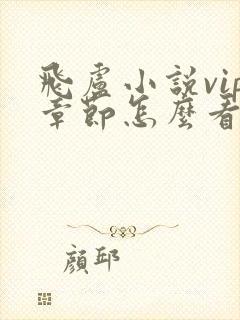 飛盧小說vip
章節怎麼看
顏邱